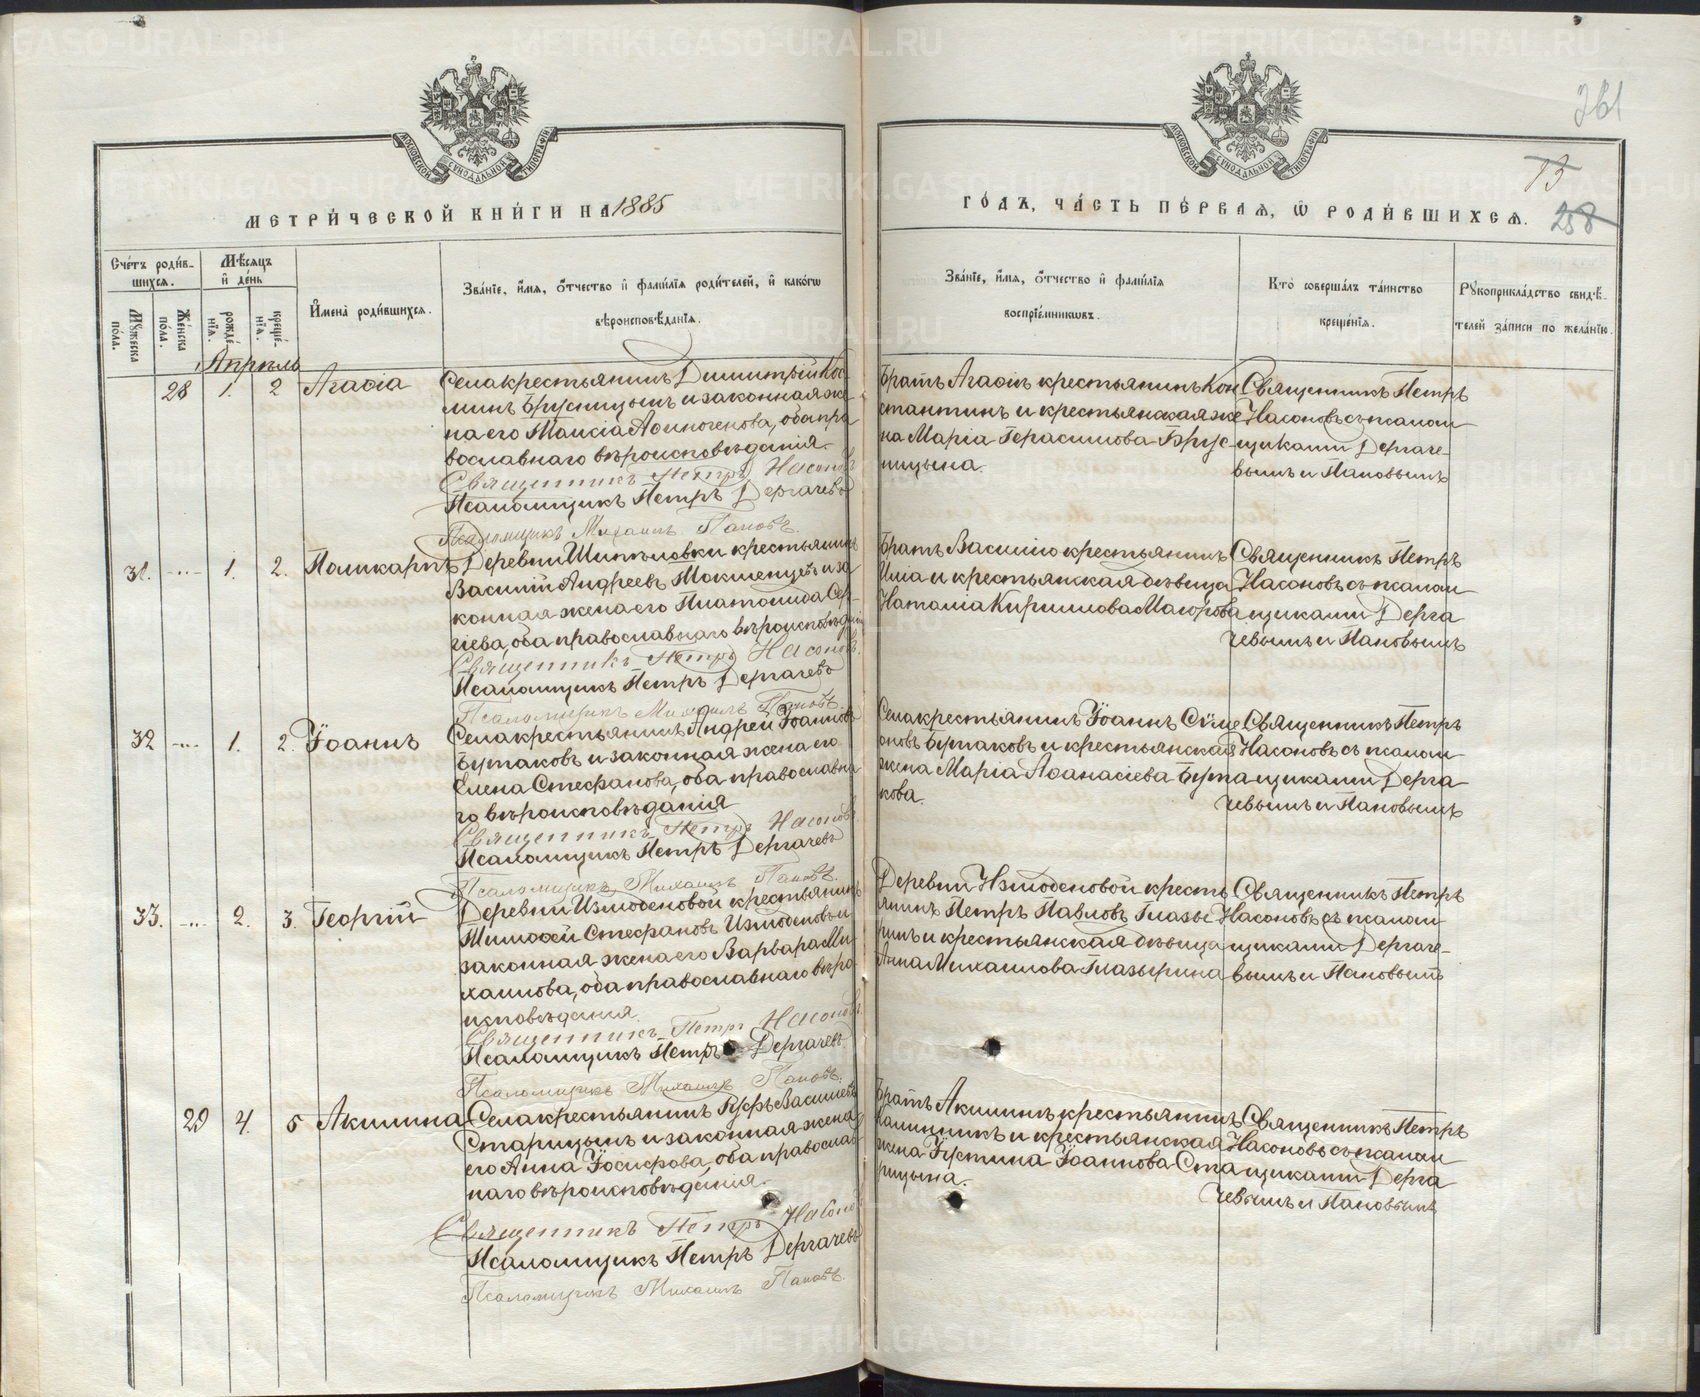 METRIKI.GASO-URAL.RU
361
73
258
МЕТРИ́ЧЕСКОЙ КНИ́ГИ НА 1885
ГО́ДЪ, ЧА́СТЬ ПЕ́РВАЯ, Ѡ РОДИ́ВШИХСЯ.
Сче́тъ роди́в-
шихся.
Мѣ́сяцъ
и́ де́нь
Мꙋжеска
по́ла.
Же́нска
по́ла.
рожде́-
нїя.
креще́-
нїя.
И҆мена̀ роди́вшихся.
Зва́нїе, и҆́мя, ѻ҆́тчество и҆ фами́лїя роди́телей, и҆ како́гѡ
вѣроисповѣ́данїя.
Зва́нїе, и҆́мя, ѻ҆́тчество и҆ фами́лїя
воспрїе́мниковъ.
Кто̀ соверша́лъ та́инство
креще́нїя.
Рꙋкоприкла́дство свидѣ́-
телей за́писи по жела́нїю.
Апрѣль
28 1. 2 Агаѳія
Села крестьянинъ Димитрій Кос-
минъ Брусницынъ и законная же-
на его Таисія Аѳиногенова, оба пра
вославнаго вѣроисповѣданія.
Священникъ Петръ Насоновъ
Псаломщикъ Петръ Дергачевъ
Псаломщикъ Михаилъ Пановъ.
Братъ Агаѳіи крестьянинъ Кон
стантинъ и крестьянская же
на Марія Герасимова Брус-
ницына.
Священникъ Петръ
Насоновъ съ псалом-
щиками Дергаче-
вымъ и Пановымъ
31. -..- 1. 2. Поликарпъ
Деревни Шипѣловки крестьянинъ
Василій Андреевъ Токменцевъ и за
конная жена его Платонида Сер-
гіева, оба православнаго вѣроисповѣданія
Священникъ Петръ Насоновъ.
Псаломщикъ Петръ Дергачевъ
Псаломщикъ Михаилъ Пановъ.
Братъ Василію крестьянинъ
Илія и крестьянская дѣвица
Наталія Кириллова Магорова
Священникъ Петръ
Насоновъ съ псалом-
щиками Дерга
чевымъ и Пановымъ
32 -..- 1. 2. Іоаннъ
Села крестьянинъ Андрей Іоанновъ
Бутаковъ и законная жена его
Елена Стефанова, оба православна
го вѣроисповѣданія
Священникъ Петръ Насоновъ
Псаломщикъ Петръ Дергачевъ
Псаломщикъ Михаилъ Пановъ.
Села крестьянинъ Іоаннъ Сѵме
оновъ Бутаковъ и крестьянская
жена Марія Аѳанасіева Бута
кова.
Священникъ Петръ
Насоновъ съ псалом-
щиками Дерга
чевымъ и Пановымъ
33. -..- 2. 3. Георгій
Деревни Измоденовой крестьянинъ
Тимоѳей Стефановъ Измоденовъ и
законная жена его Варвара Ми-
хаилова, оба православнаго вѣро
исповѣданія.
Священникъ Петръ Насоновъ.
Псаломщикъ Петръ Дергачевъ
Псаломщикъ Михаилъ Пановъ.
Деревни Измоденовой кресть
янинъ Петръ Павловъ Глазы
ринъ и крестьянская дѣвица
Анна Михаилова Глазырина
Священникъ Петръ
Насоновъ съ псалом-
щиками Дергаче-
вымъ и Пановымъ
29 4. 5 Акилина
Села крестьянинъ Руфъ Василіевъ
Старицынъ и законная жена
его Анна Іосифова, оба православ
наго вѣроисповѣданія.
Священникъ Петръ Насоновъ
Псаломщикъ Петръ Дергачевъ
Псаломщикъ Михаилъ Пановъ.
Братъ Акилины крестьянинъ
Каллиникъ и крестьянская
жена Іустина Іоаннова Ста
рицына.
Священникъ Петръ
Насоновъ съ псалом-
щиками Дерга
чевымъ и Пановымъ